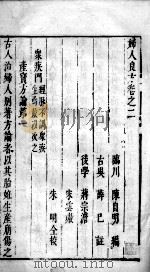 婦人良方卷之二
臨川 陳自明 編
古吳 薛 己 註
後學 蔣宗澹
宋雲
朱 明仝校
衆疾門 經脈不調衆疾
生焉故以次之
產寶方論第一
古人治婦人別著方論者以其胎妊生產崩傷之